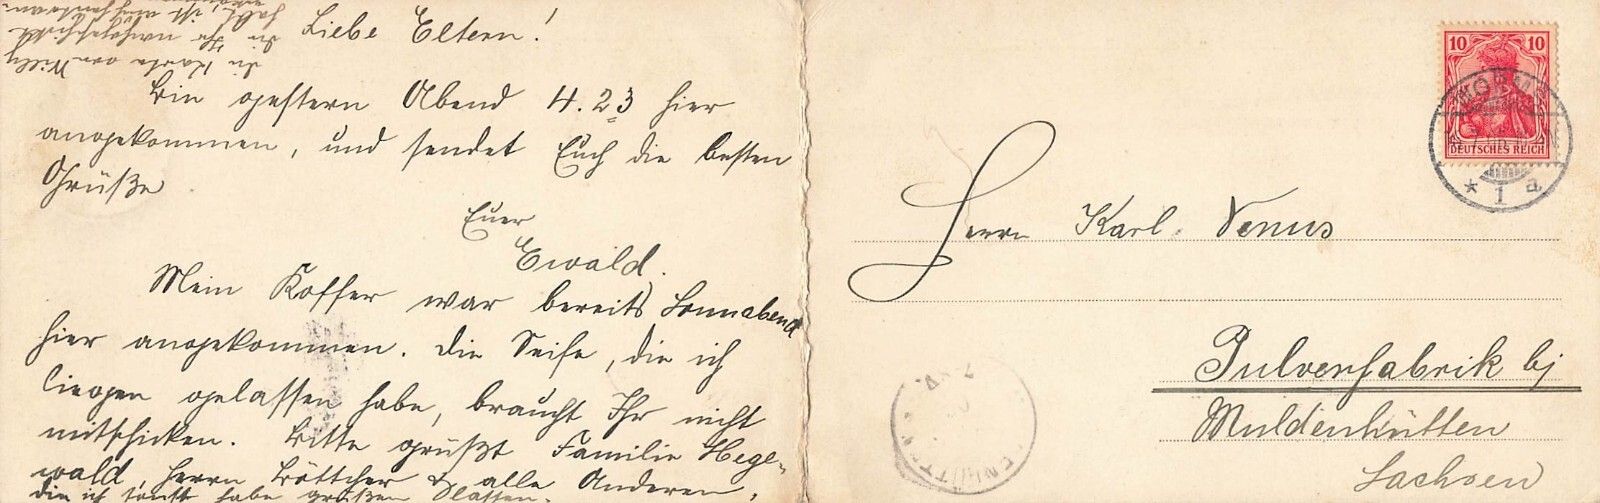 Liebe Eltern!
Bin gestern Abend 4.23 hier
angekommen, und sendet Euch die besten
Grüße
Euer
Ewald.
Mein Koffer war bereits Sonnabend
hier angekommen. Die Seife, die ich
liegen gelassen habe, braucht Ihr nicht
mitschicken. Bitte grüßt Familie Hege-
wald, Herrn Böttcher & alle Anderen,
die ich sonst habe grüßen lassen.
die Karte von Willy
die Ihr nachgeschickt
habt, ist auch
10 10
DEUTSCHES REICH
WORMS
* 1 a
Herrn Karl Venus
Pulverfabrik bj
Muldenhütten
Sachsen